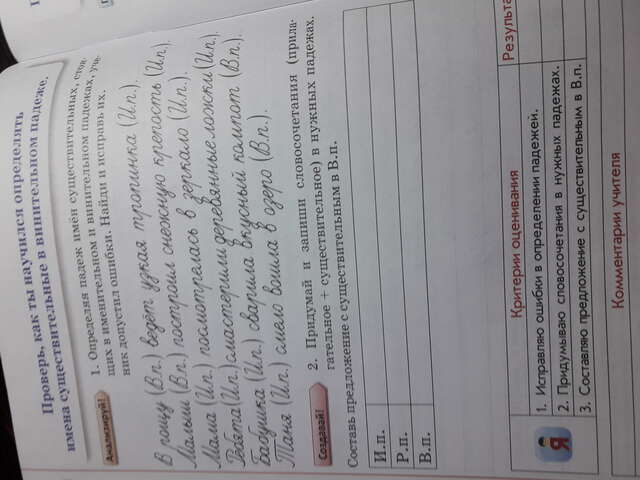 Проверь, как ты научился определять
имена существительные в винительном падеже.
Анализируй!
1. Определяя падеж имён существительных, стоя-
щих в именительном и винительном падежах, уче-
ник допустил ошибки. Найди и исправь их.
В рощу (В.п.) ведёт узкая тропинка (И.п.).
Малыш (В.п.) построил снежную крепость (И.п.).
Мама (И.п.) посмотрелась в зеркало (И.п.).
Ребята (И.п.) смастерили деревянные ложки (И.п.).
Бабушка (И.п.) сварила вкусный компот (В.п.).
Таня (И.п.) смело вошла в озеро (В.п.).
Создавай!
2. Придумай и запиши словосочетания (прила-
гательное + существительное) в нужных падежах.
Составь предложение с существительным в В.п.
И.п.
Р.п.
В.п.
Я
Критерии оценивания
Результа
1. Исправляю ошибки в определении падежей.
2. Придумываю словосочетания в нужных падежах.
3. Составляю предложение с существительным в В.п.
Комментарии учителя